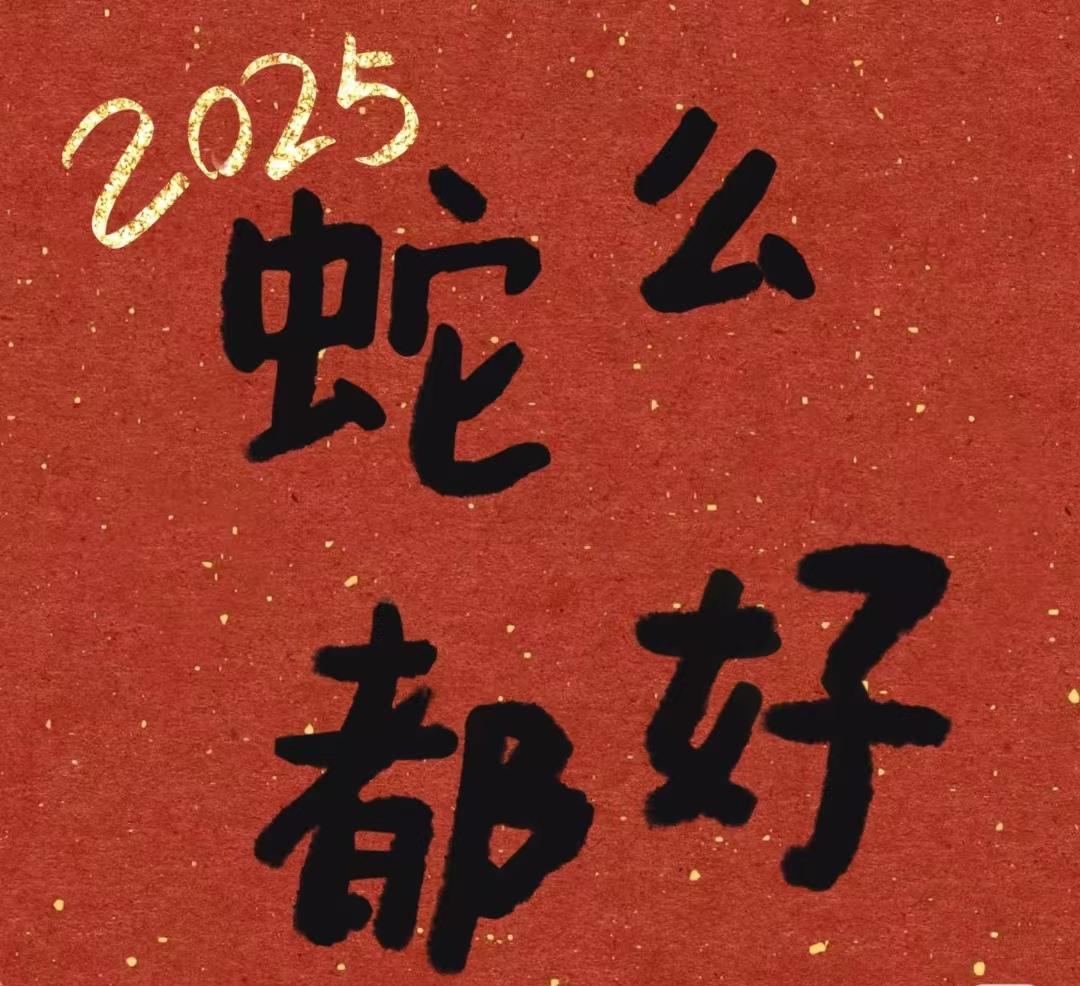 2025
蛇么
都好